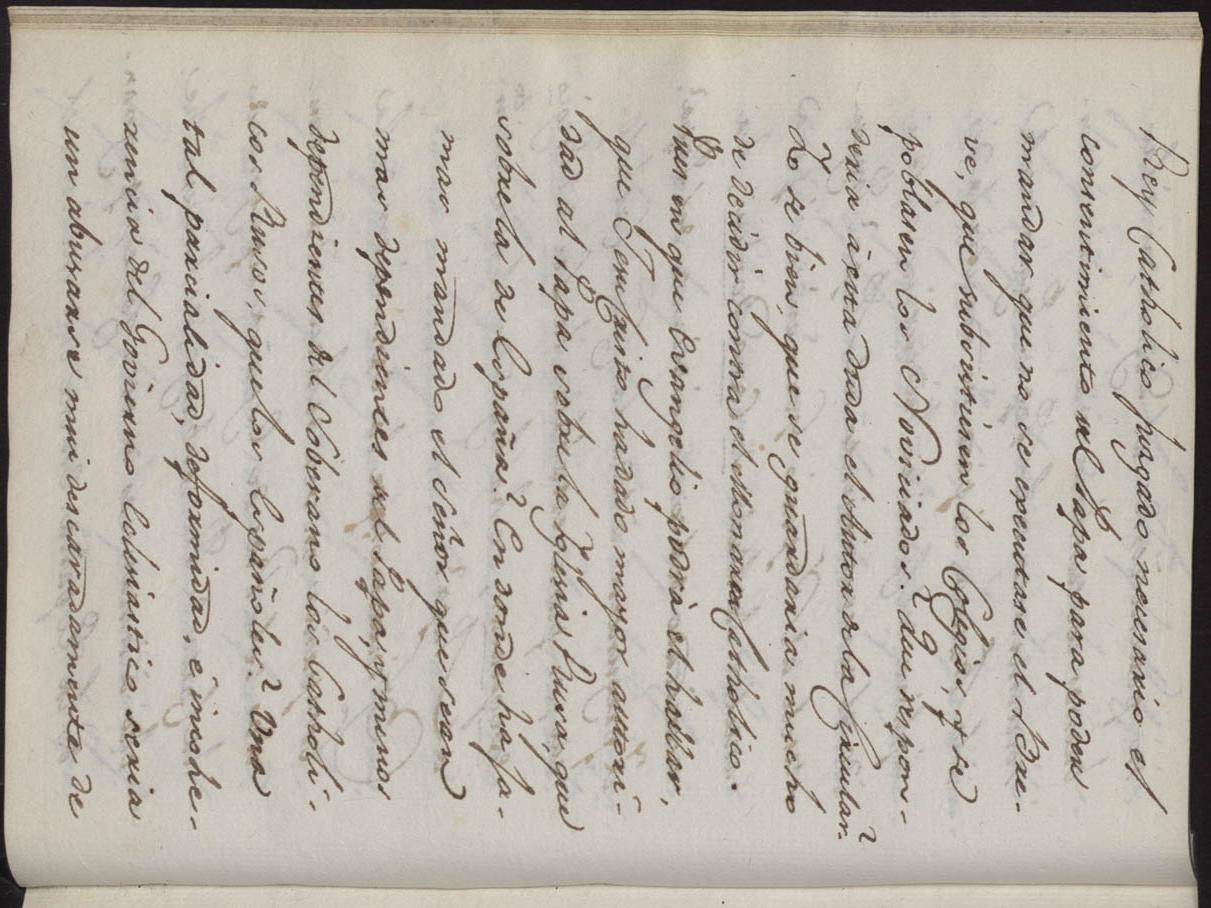 Rey Catholico juzgado necesario el
consentimiento al Papa para poder
mandar que no se executase el Bre-
ve, que subsistiesen los Colegios, y se
poblasen los Noviciados? Que respon-
deria à esta duda el Autor de la Circular?
Yo se bien, que se guardaria mucho
de decidir contra el Monarca Catholico.
Pues en que Evangelio podrà el hallar,
que Jesu Christo ha dado mayor autori-
dad al Papa sobre la Iglesia Rusa, que
sobre la de España? En donde ha ja-
mas mandado el Señor que sean
mas dependientes del Papa, y menos
dependientes del Soberano los Catholi-
cos Rusos, que los Españoles? Una
tal parcialidad, deformidad, è incohe-
rencia del Govierno Eclesiastico seria
un abusarse mui descaradamente de